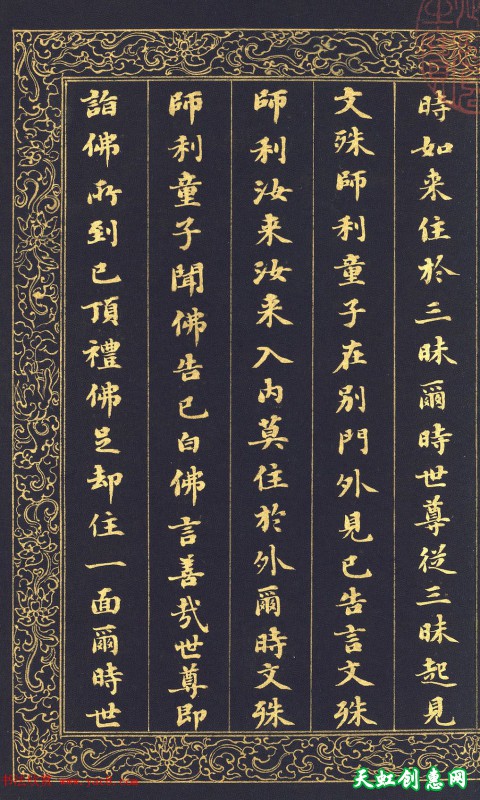 時如来住於三昧爾時世尊從三昧起見
文殊師利童子在別門外見已告言文殊
師利汝来汝来入内莫住於外爾時文殊
師利童子聞佛告已白佛言善哉世尊即
詣佛所到已頂禮佛足却住一面爾時世
天虹创惠网